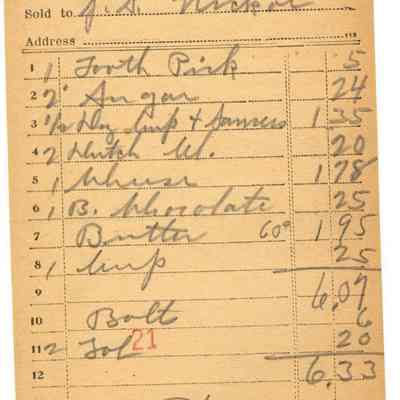 Sold to J. S. Nickol
Address
1 1 Tooth Pick 5
2 2# Sugar 24
3 1/2 Doz Cup + Saucers 1 35
4 2 Dutch Cl. 20
5 1 Cheese 1 78
6 1 B. Chocolate 25
7 Butter 60¢ 1 95
8 1 Cup 25
9 6.07
10 Bolt 6
11 2 Tob 21 20
12 6.33